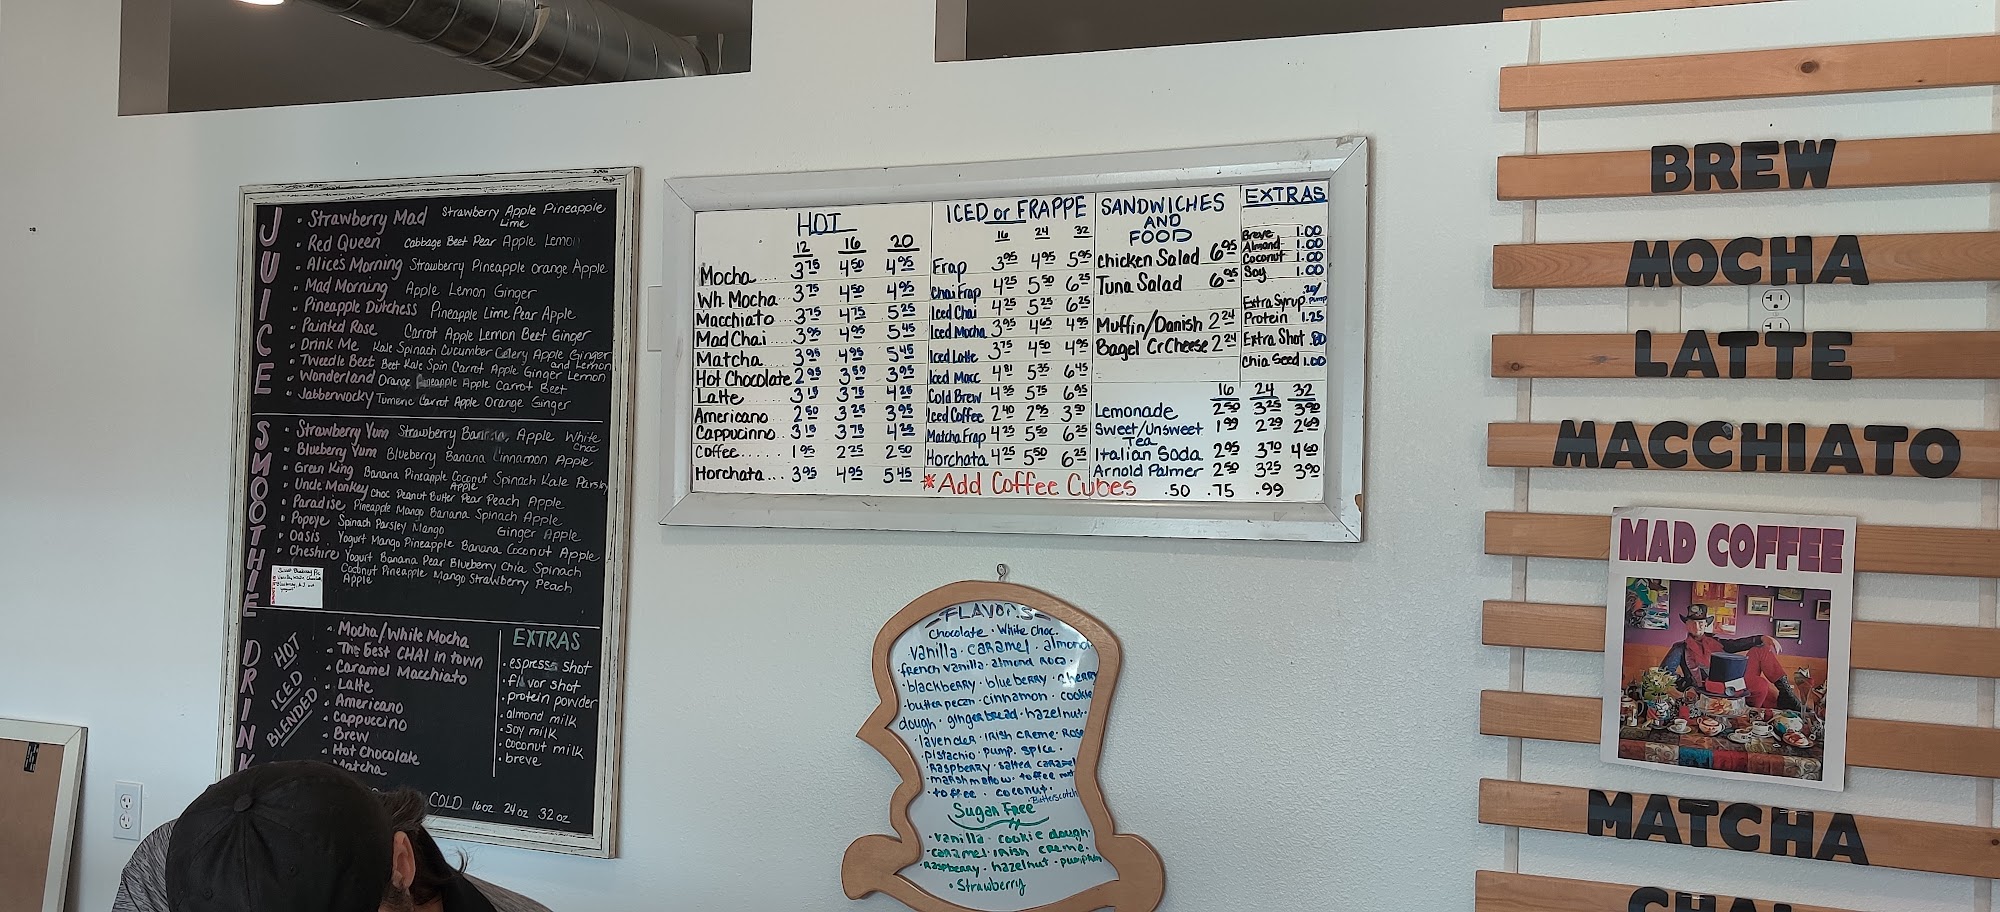 JUICE
• Strawberry Mad Strawberry Apple Pineapple
Lime
• Red Queen Cabbage Beet Pear Apple Lemon
• Alice's Morning Strawberry Pineapple orange Apple
• Mad Morning Apple Lemon Ginger
• Pineapple Dutchess Pineapple Lime Pear Apple
• Painted Rose Carrot Apple Lemon Beet Ginger
• Drink Me Kale Spinach Cucumber Celery Apple Ginger
and Lemon
• Tweedle Beet Beet Kale Spin Carrot Apple Ginger Lemon
• Wonderland Orange Pineapple Apple Carrot Beet
• Jabberwocky Tumeric Carrot Apple Orange Ginger
SMOOTHIE
• Strawberry Yum Strawberry Banana, Apple White
Choc
• Blueberry Yum Blueberry Banana Cinnamon Apple
• Green King Banana Pineapple Coconut Spinach Kale Parsley
Apple
• Uncle Monkey Choc Peanut Butter Pear Peach Apple
• Paradise Pineapple Mango Banana Spinach Apple
• Popeye Spinach Parsley Mango Ginger Apple
• Oasis Yogurt Mango Pineapple Banana Coconut Apple
• Cheshire Yogurt Banana Pear Blueberry Chia Spinach
Coconut Pineapple Mango Strawberry Peach
Apple
DRINK
HOT
ICED
BLENDED
• Mocha/White Mocha
• The best CHAI in town
• Caramel Macchiato
• Latte
• Americano
• Cappuccino
• Brew
• Hot Chocolate
• Matcha
EXTRAS
• espresso shot
• flavor shot
• protein powder
• almond milk
• soy milk
• coconut milk
• breve
COLD 16oz 24oz 32oz
HOT
12 16 20
Mocha.... 3.75 4.50 4.95
Wh. Mocha... 3.75 4.50 4.95
Macchiato... 3.75 4.75 5.25
Mad Chai... 3.95 4.95 5.45
Matcha... 3.95 4.95 5.45
Hot Chocolate 2.95 3.50 3.95
Latte... 3.15 3.75 4.25
Americano 2.50 3.25 3.95
Cappucinno.. 3.15 3.75 4.25
Coffee..... 1.95 2.25 2.50
Horchata... 3.95 4.95 5.45
ICED or FRAPPE
16 24 32
Frap 3.95 4.95 5.95
Chai Frap 4.25 5.50 6.25
Iced Chai 4.25 5.25 6.25
Iced Mocha 3.95 4.65 4.95
Iced Latte 3.75 4.50 4.95
Iced Macc 4.81 5.35 6.45
Cold Brew 4.35 5.75 6.95
Iced Coffee 2.40 2.95 3.50
Matcha Frap 4.25 5.50 6.25
Horchata 4.25 5.50 6.25
*Add Coffee Cubes .50 .75 .99
SANDWICHES
AND
FOOD
Chicken Salad 6.95
Tuna Salad 6.95
Muffin/Danish 2.24
Bagel CrCheese 2.24
EXTRAS
Breve 1.00
Almond 1.00
Coconut 1.00
Soy 1.00
Extra Syrup pump
Protein 1.25
Extra Shot .80
Chia Seed 1.00
16 24 32
Lemonade 2.50 3.25 3.90
Sweet/Unsweet 1.99 2.29 2.69
Tea
Italian Soda 2.95 3.70 4.60
Arnold Palmer 2.50 3.25 3.90
FLAVORS
Chocolate • White Choc.
vanilla • caramel • almond
• french vanilla • almond roca •
• blackberry • blueberry • cherry
• butter pecan • cinnamon • cookie
dough • gingerbread • hazelnut •
• lavender • irish creme • Rose
• pistachio • pump. spice •
• raspberry • salted caramel
• marshmallow • toffee nut
• toffee • coconut •
• Butterscotch
Sugar Free
• vanilla • cookie dough
• caramel • irish creme •
• raspberry • hazelnut • pumpkin
• Strawberry
BREW
MOCHA
LATTE
MACCHIATO
MAD COFFEE
MATCHA
CHAI